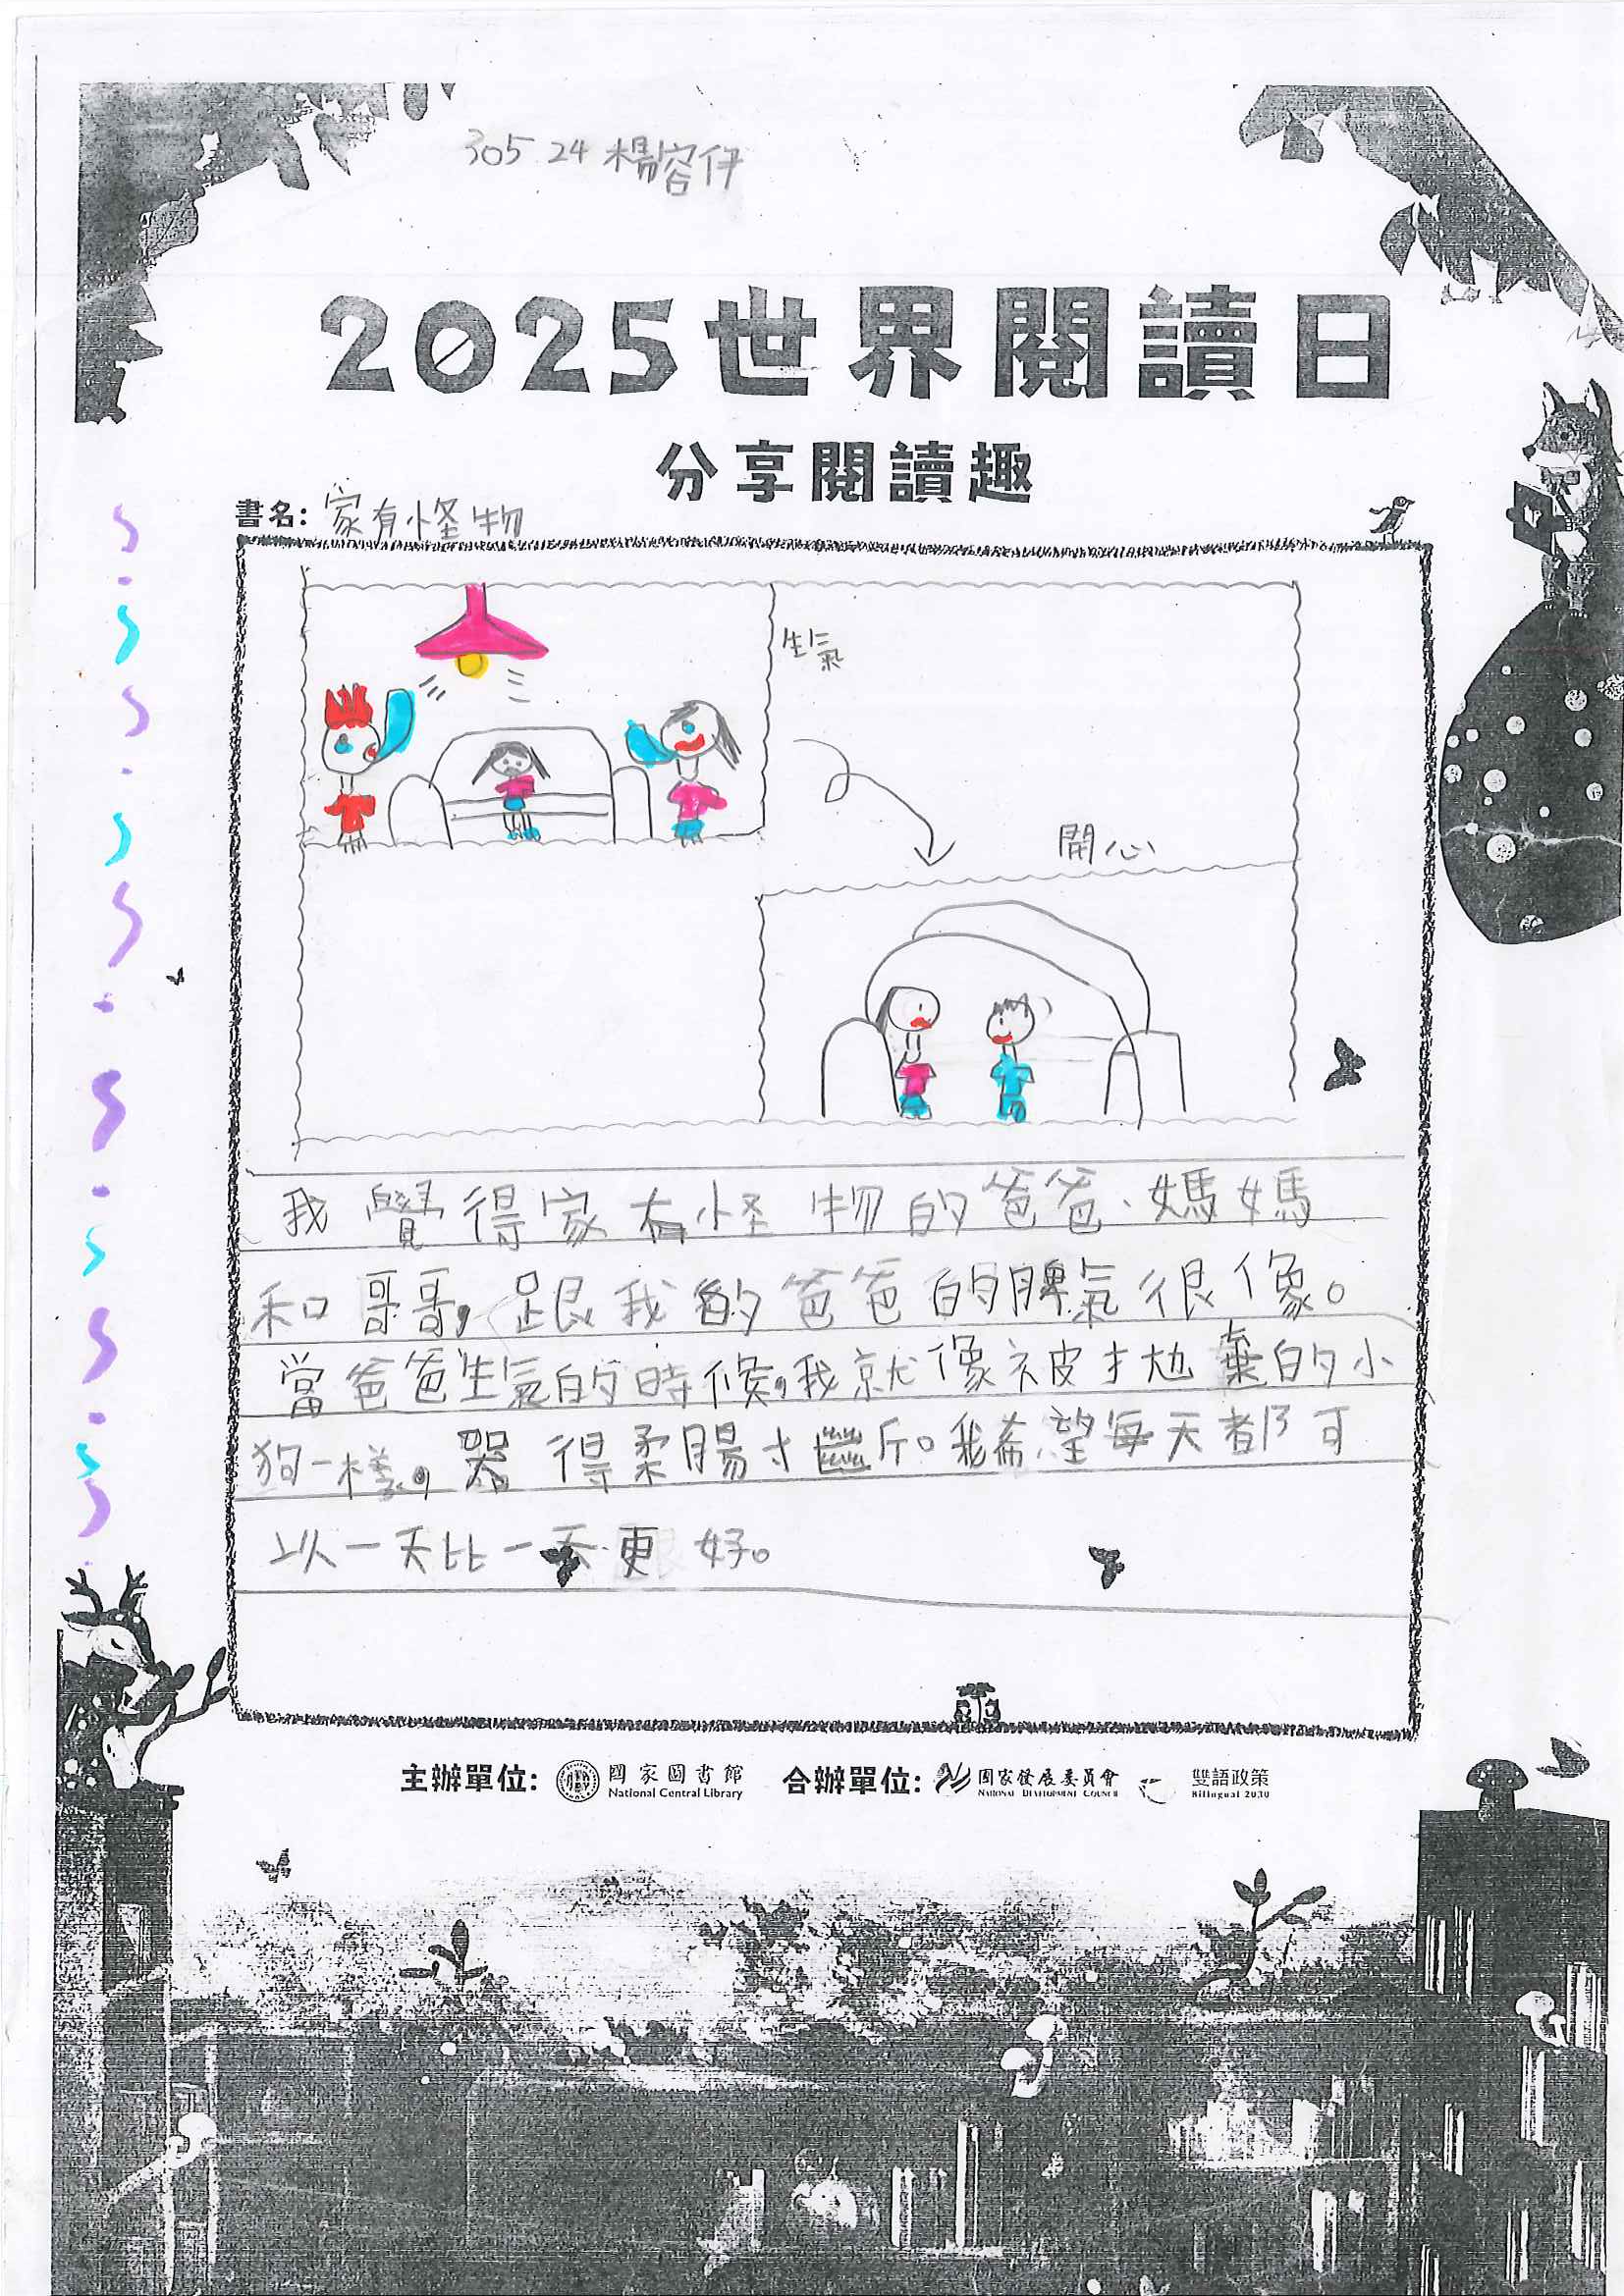 305 24 楊容伊
2025世界閱讀日
分享閱讀趣
書名: 家有怪物
生氣
開心
我覺得家有怪物的爸爸、媽媽
和哥哥,跟我的爸爸的脾氣很像。
當爸爸生氣的時候,我就像被拋棄的小
狗一樣,哭得柔腸寸斷。我希望每天都可
以一天比一天更好。
主辦單位: 國家圖書館 National Central Library 合辦單位: 國家發展委員會 NATIONAL DEVELOPMENT COUNCIL 雙語政策 Bilingual 2030